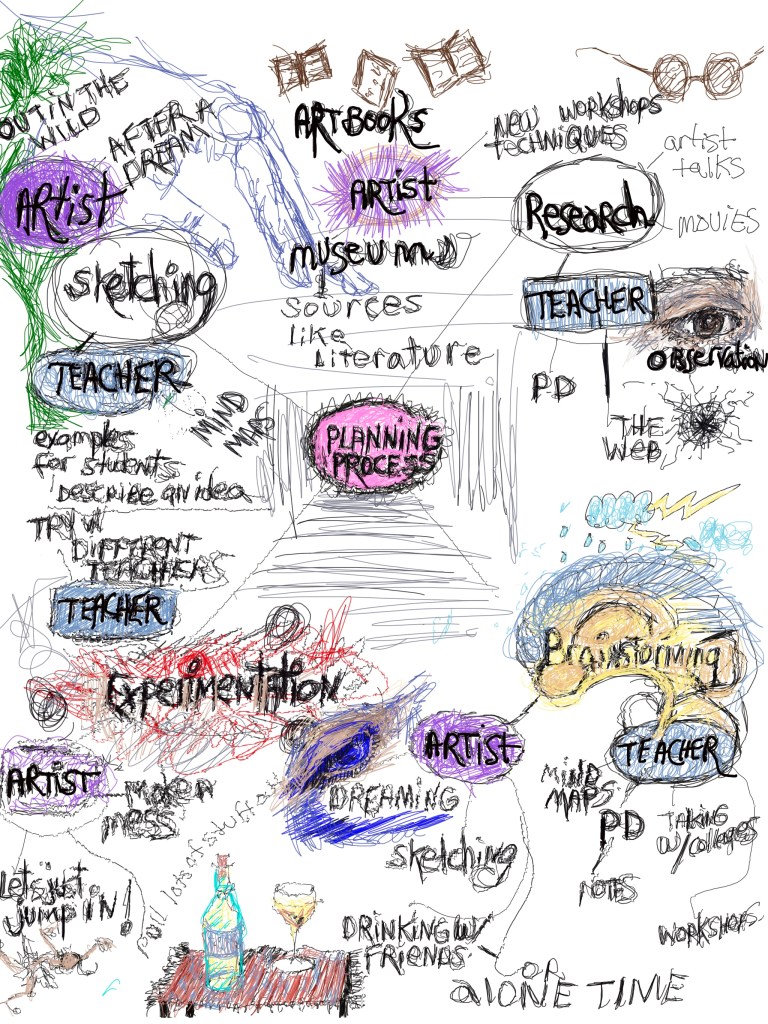 OUT IN THE
WILD
AFTER A
DREAM
ARTist
sketching
TEACHER
MIND
MAP
examples
for students
Describe an idea
TRY W/
DIFFTRENT
TEACHERS
TEACHER
ARTBOOKS
ARTist
museum
sources
like
Literature
NEW WORKSHOPS
TECHNIQUES
artist
talks
Research
MOVIES
TEACHER
OBSERVATION
PD
THE
WEB
PLANNING
PROCESS
Experimentation
ARTIST
make a
mess
Let's just
jump IN!
pull lots of stuff out
Brainstorming
ARTIST
DREAMING
sketching
DRINKING W/
FRIENDS
OR
alONE TIME
TEACHER
MIND
MAPS
PD
NOTES
TALKING
W/
WORKSHOPS